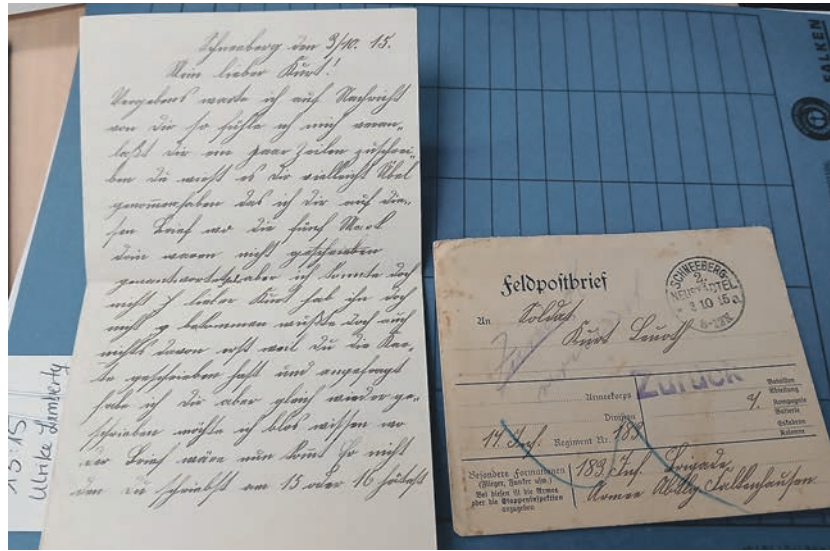 Schneeberg den 3/10. 15.
Mein lieber Kurt!
Vergebens warte ich auf Nachricht
von Dir so fühle ich mich veran-
laßt dir ein paar Zeilen zuschrei-
ben du wirst es dir vielleicht Übel
genommenhaben das ich dir auf die-
sen Brief wo die fünf Mark
drin waren nicht geschrieben
geantwortet aber ich konnte doch
nicht lieber Kurt hab ihn doch
nicht bekommen wußte doch auch
nichts davon erst weil du die Kar-
te geschrieben hast und angefragt
habe ich dir aber gleich wieder ge-
schrieben möchte ich blos wissen wo
der Brief wäre nun kommt er nicht
den du schriebst am 15 oder 16 hättest
15:15
Ulrike Limberty
FALKEN
Feldpostbrief
SCHNEEBERG-
2.
NEUSTÄDTEL
3.10.15
An Soldat
Kurt
Zurück
Zurück
Armeekorps
Division
Regiment Nr. 183
Bataillon
Abteilung
9. Kompagnie
Batterie
Eskadron
Kolonne
Besondere Formationen
(Flieger, Funker usw.)
Bei diesen ist die Armee
oder die Etappeninspektion
anzugeben
183 Inf. Brigade
Armee Abtlg Falkenhausen